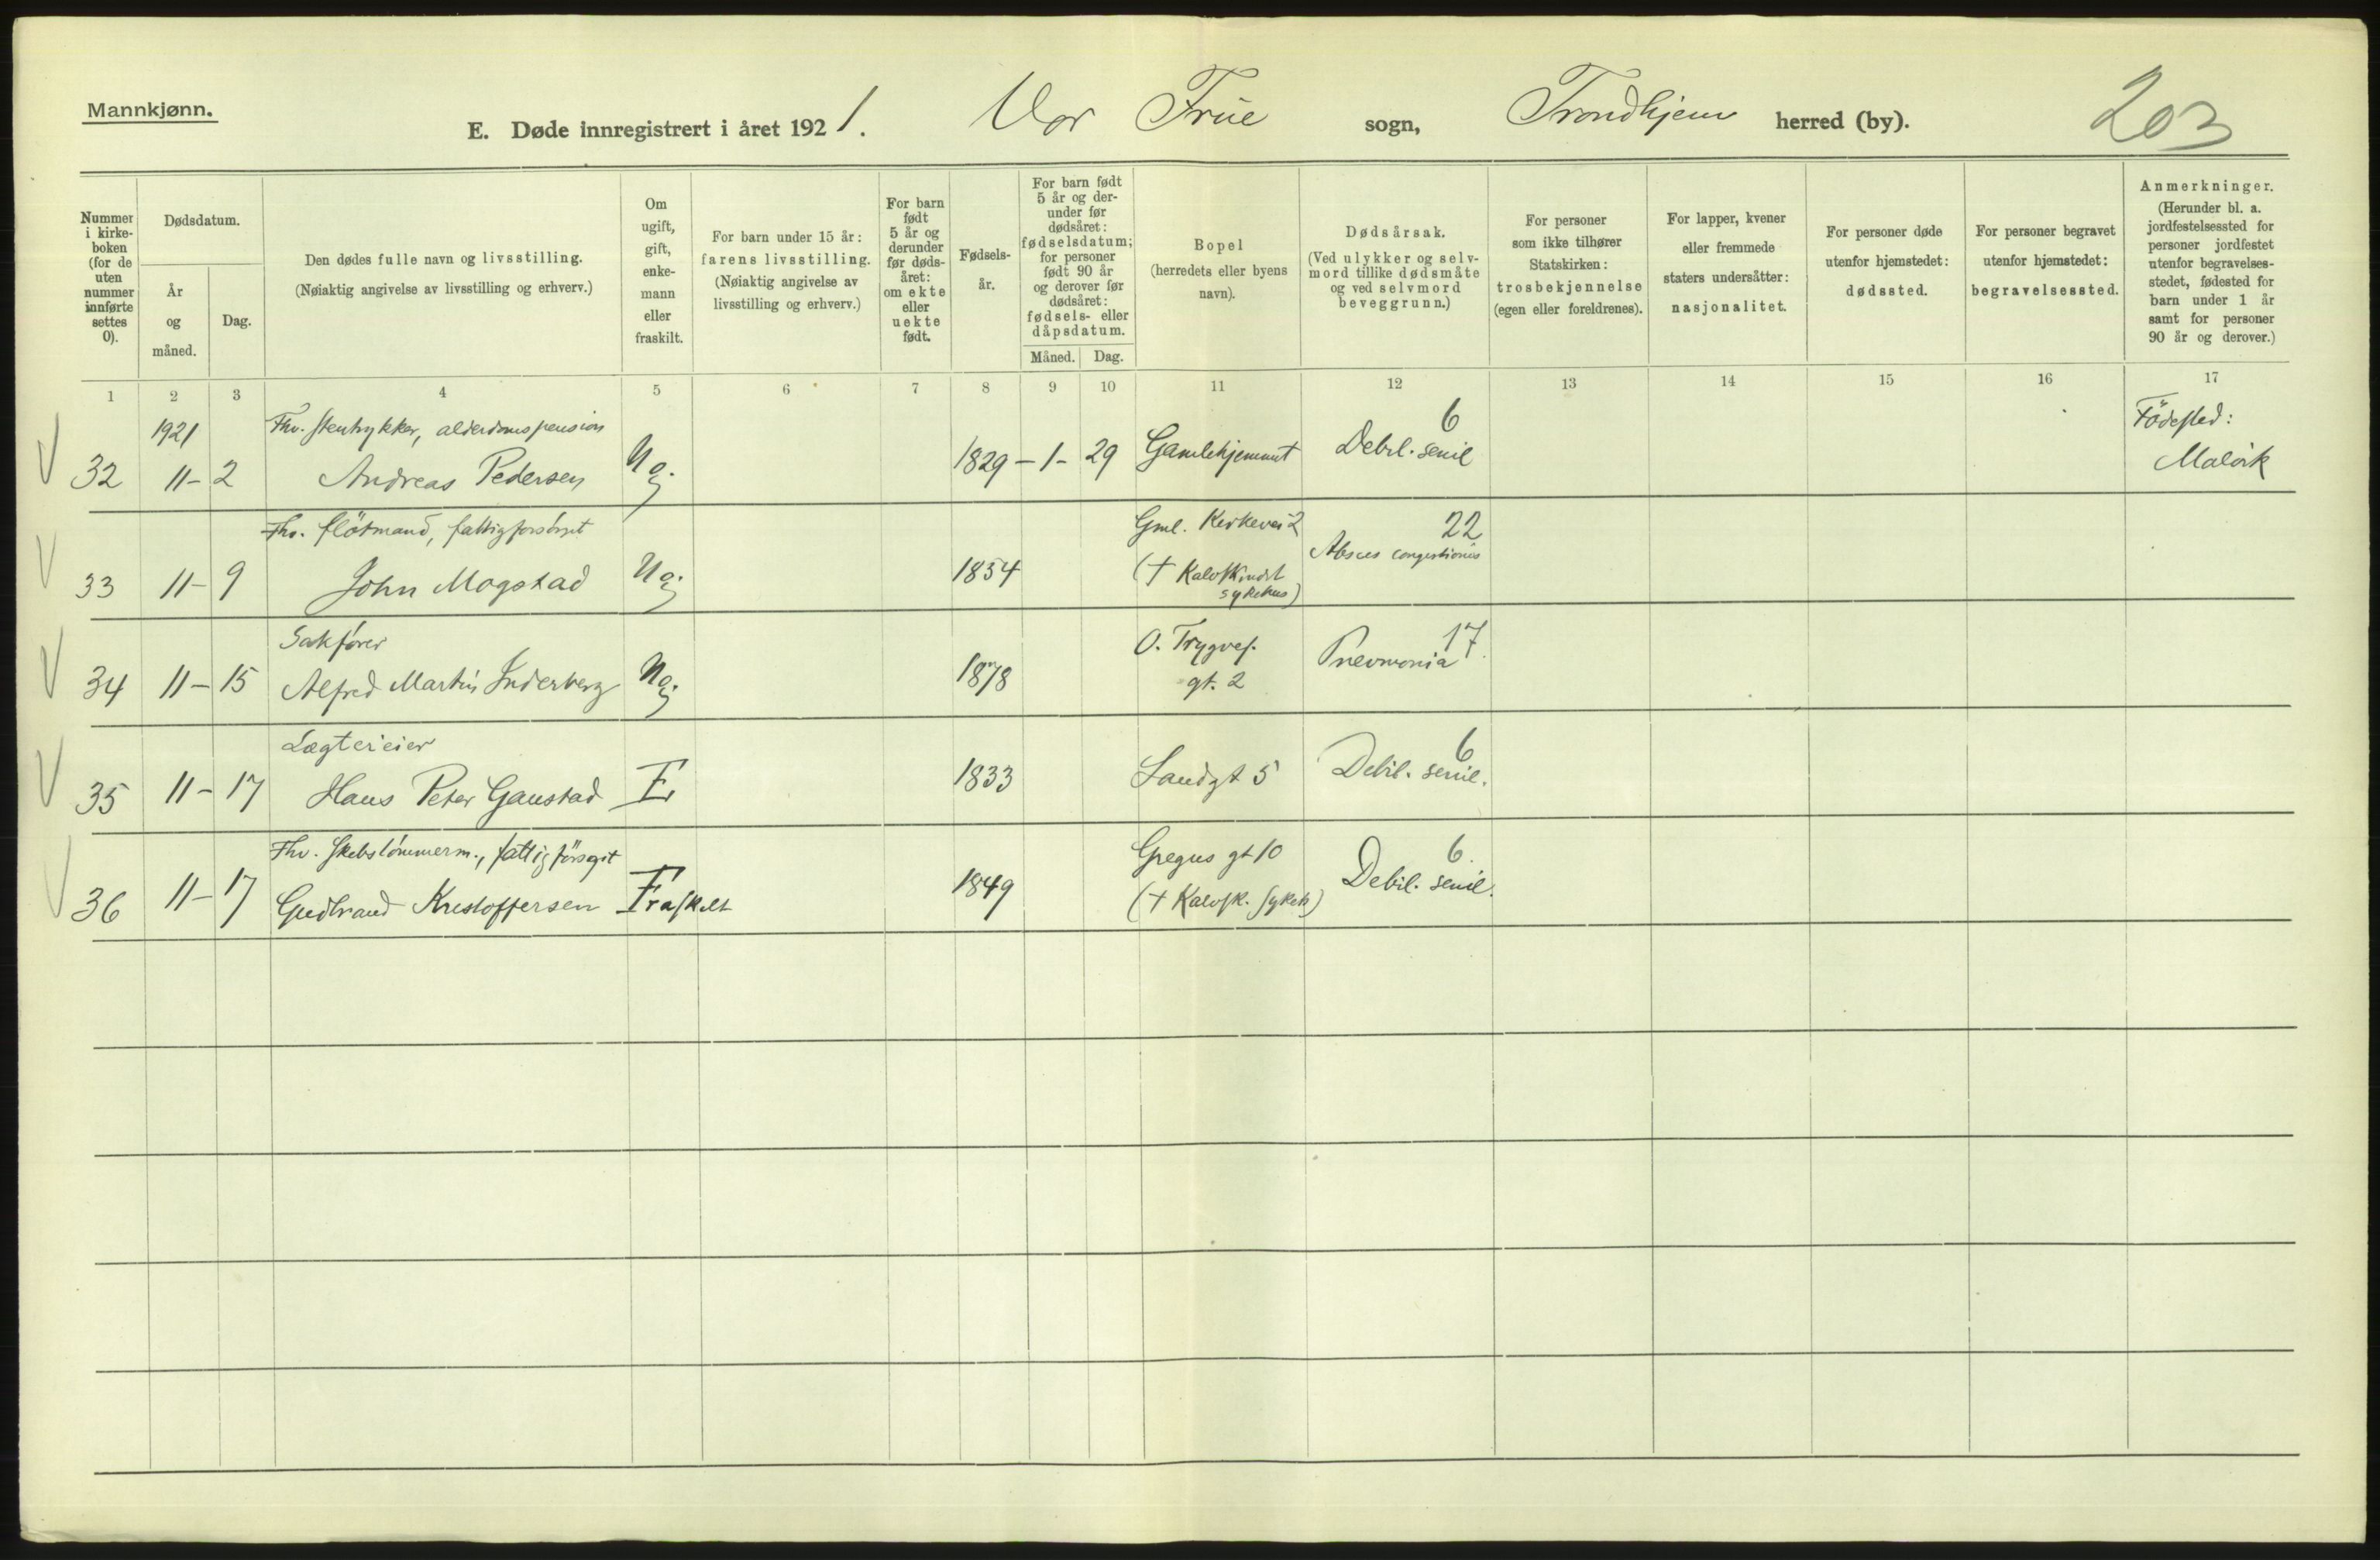 Mannkjønn.
E. Døde innregistrert i året 1921. Vor Frue sogn, Trondhjem herred (by). 203
Nummer i kirke-boken (for de uten nummer innførte settes 0).
Dødsdatum.
År og måned.
Dag.
Den dødes fulle navn og livsstilling.
(Nøiaktig angivelse av livsstilling og erhverv.)
Om ugift, gift, enke-mann eller fraskilt.
For barn under 15 år:
farens livsstilling.
(Nøiaktig angivelse av
livsstilling og erhverv.)
For barn født 5 år og derunder før døds-året: om ekte eller uekte født.
Fødsels-år.
For barn født
5 år og der-
under før
dødsåret:
fødselsdatum;
for personer
født 90 år
og derover før
dødsåret:
fødsels- eller
dåpsdatum.
Måned. Dag.
Bopel
(herredets eller byens
navn).
Dødsårsak.
(Ved ulykker og selv-
mord tillike dødsmåte
og ved selvmord
beveggrunn.)
For personer
som ikke tilhører
Statskirken:
trosbekjennelse
(egen eller foreldrenes).
For lapper, kvener
eller fremmede
staters undersåtter:
nasjonalitet.
For personer døde
utenfor hjemstedet:
dødssted.
For personer begravet
utenfor hjemstedet:
begravelsessted.
Anmerkninger.
(Herunder bl. a.
jordfestelsessted for
personer jordfestet
utenfor begravelses-
stedet, fødested for
barn under 1 år
samt for personer
90 år og derover.)
1 2 3 4 5 6 7 8 9 10 11 12 13 14 15 16 17
1921 Fhv. stentrykker, alderdomspension 6 Födested:
32 11- 2 Andreas Pedersen Ug. 1829 - 1 - 29 Gamlehjemmet Debil. senil Malvik
Fhv. flötmand, fattigforsörget Gml. Kirkevei 2 22
33 11- 9 John Mogstad Ug. 1854 (+ Kalvskindet sykehus) Absces congestionis
Sakfører O. Trygves. 17
34 11- 15 Alfred Martin Inderberg Ug. 1878 gt. 2 Pnevmonia
Lægtereier 6
35 11- 17 Hans Peter Gaustad E 1833 Sandgt 5 Debil. senil.
Fhv. skibstömmerm., fattigforsörget Gregus gt 10 6.
36 11- 17 Gudbrand Kristoffersen Fraskilt 1849 (+ Kalvsk. sykeh) Debil. senil.